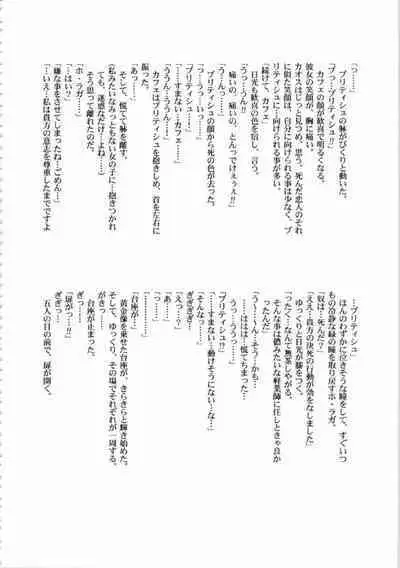 「っ……」
ブリティシュの躰がびくりと動いた。
「ブっ…ブリティシュ!!」
カフェの顔が歓喜で明るくなる。
彼女の笑顔が、胸に痛い。
カオスはじっと見つめ、思う。死んだ恋人のそれ
に似た笑顔は、自分に向けられる事は少なく、ブ
リティシュに…向けられる事が多い。
「続けて、カフェ」
日光も歓喜の色を宿し、言う。
「うっ…うん!!
痛いの、痛いの、とんってけぇぇぇ!!」
「う…んっ……」
ブリティシュの顔から死の色が去った。
「…う……うぅ…いっ……」
「ブリティシュ!!」
「……すまない…カフェ……」
「ううん……ううん……」
カフェはブリティシュを抱きしめ、首を左右に
振った。
「あっ……」
そして、慌てて躰を離す。
(私みたいなみっともない女の子に…抱きつかれ
ても、迷惑なだけよね…)
そう思って離れたのだ。
「ホ・ラガ」
「…はい?」
「嫌な事をさせてしまったね…ごめん…」
「いえ…私は貴方の意志を尊重したまでですよ
…ブリティシュ」
ほんのわずかに泣きそうな瞳をして、すぐいつ
もの冷静な緑の瞳を取り戻すホ・ラガ。
「奴は…死んだ?」
「ええ…貴方の決死の行動が効をなしました」
ゆっくりと日光が膝をつく。
「ったく…なんて無茶しやがる。
そんな事は僧みたいな軽業師に任しときゃ良か
ったんだ」
「う〜〜、ん…そう…かも…
うっ……うぅっ……」
「ブリティシュ!!」
「…すまない…動けそうにない…な」
「そんなっ……」
ぎぎぎぎっ……
「えっ…?」
「あ……」
「………」
「……」
「台座が…!」
黄金像を乗せた台座が、きらきらと輝き始めた。
そして、ゆっくり、その場でそれぞれが一周する。
がきっ…
台座が止まった。
ぎっ……
「扉がっ…!!」
ぎぎっ…
五人の目の前で、扉が開く。